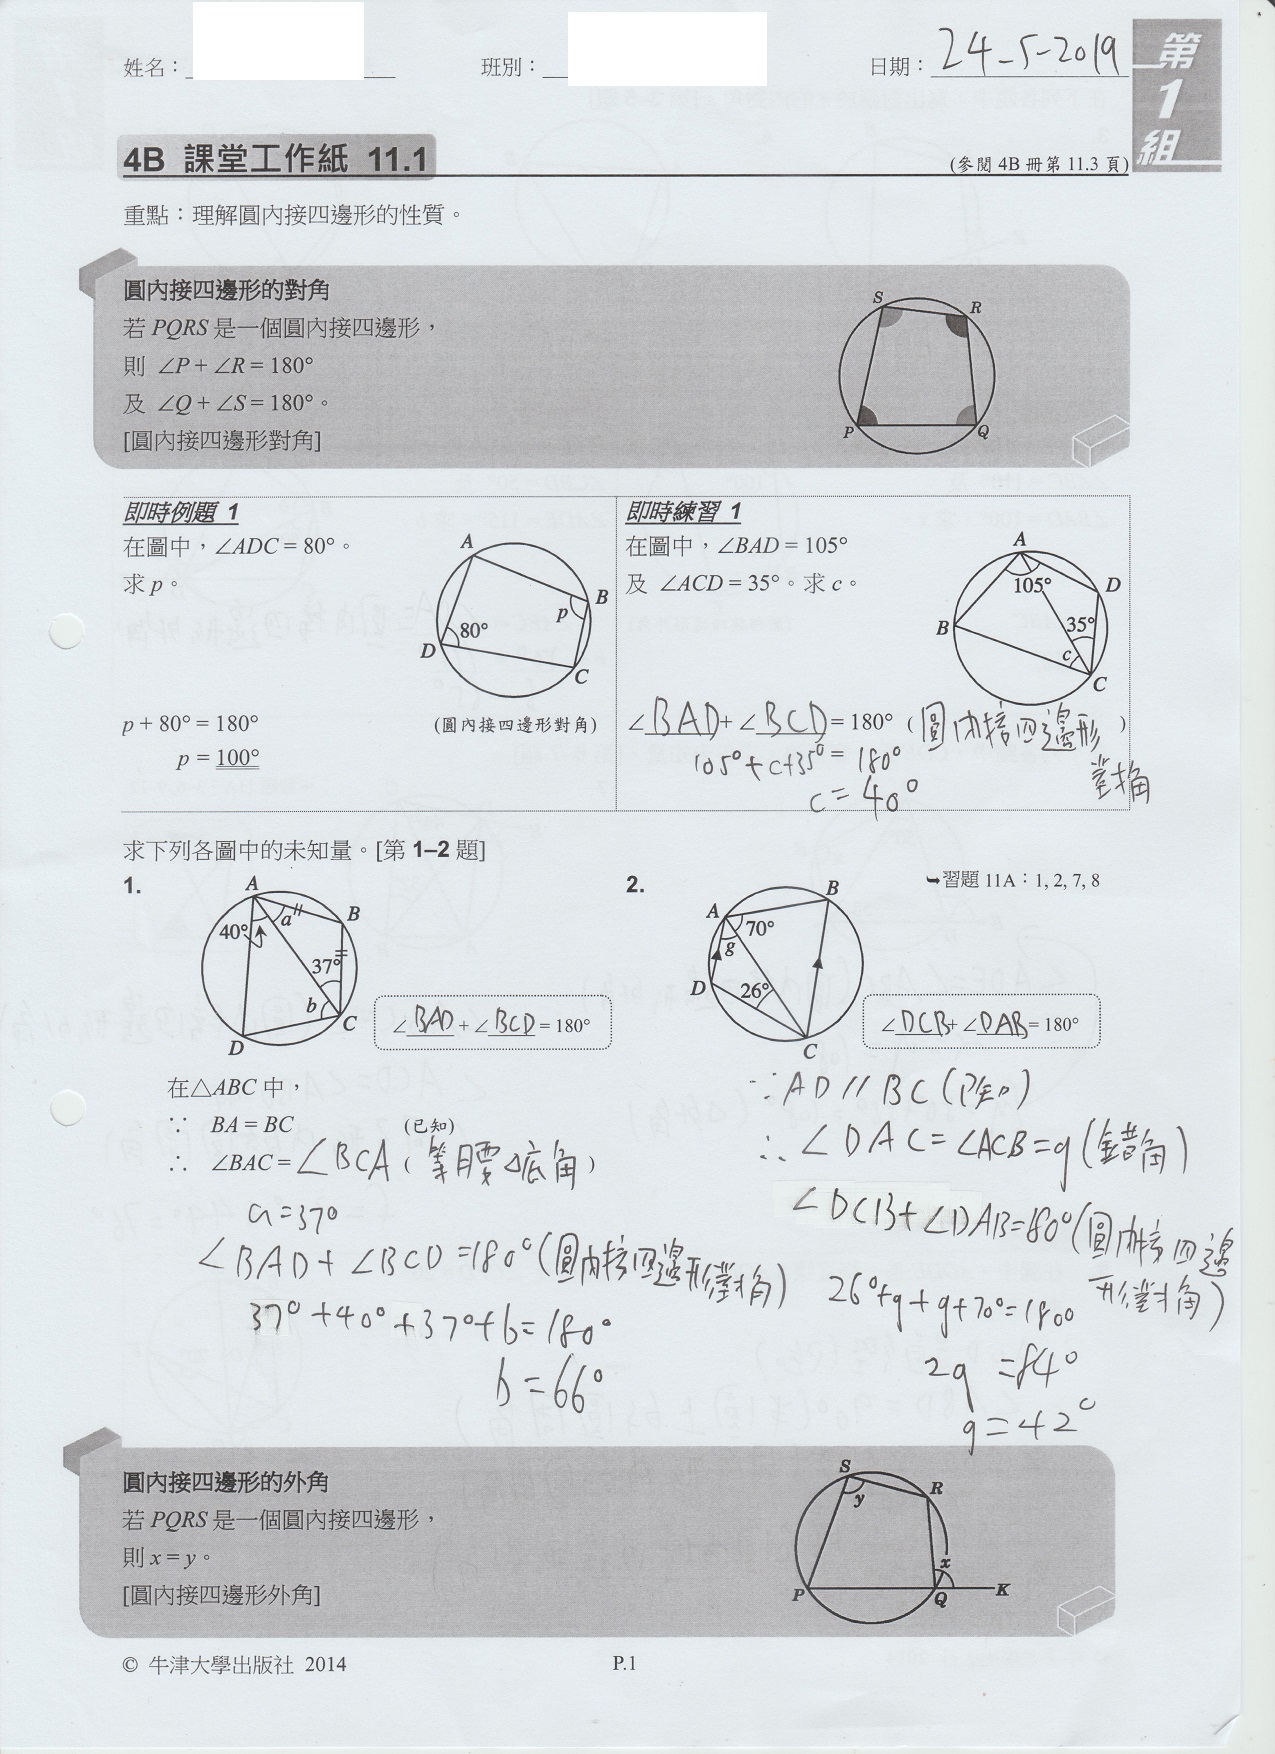 姓名：
班別：
日期：24-5-2019
第1組
4B 課堂工作紙 11.1
(參閱 4B 冊第 11.3 頁)
重點：理解圓內接四邊形的性質。
圓內接四邊形的對角
若 PQRS 是一個圓內接四邊形，
則 ∠P + ∠R = 180°
及 ∠Q + ∠S = 180°。
[圓內接四邊形對角]
S
R
P
Q
即時例題 1
在圖中，∠ADC = 80°。
求 p。
A
B
p
80°
D
C
p + 80° = 180° (圓內接四邊形對角)
p = 100°
即時練習 1
在圖中，∠BAD = 105°
及 ∠ACD = 35°。求 c。
A
105°
D
B
35°
c
C
∠BAD + ∠BCD = 180° (圓內接四邊形
對角)
105°+c+35° = 180°
c = 40°
求下列各圖中的未知量。[第 1–2 題]
➥習題 11A：1, 2, 7, 8
1.
A
B
40°
a
37°
b
C
D
∠BAD + ∠BCD = 180°
在△ABC 中，
∵ BA = BC (已知)
∴ ∠BAC = ∠BCA (等腰△底角)
a = 37°
∠BAD + ∠BCD = 180° (圓內接四邊形對角)
37° + 40° + 37° + b = 180°
b = 66°
2.
A
B
70°
g
D
26°
C
∠DCB + ∠DAB = 180°
∵ AD // BC (已知)
∴ ∠DAC = ∠ACB = g (錯角)
∠DCB + ∠DAB = 180° (圓內接四邊
形對角)
26° + g + g + 70° = 180°
2g = 84°
g = 42°
圓內接四邊形的外角
若 PQRS 是一個圓內接四邊形，
則 x = y。
[圓內接四邊形外角]
S
y
R
x
P
Q
K
© 牛津大學出版社 2014
P.1